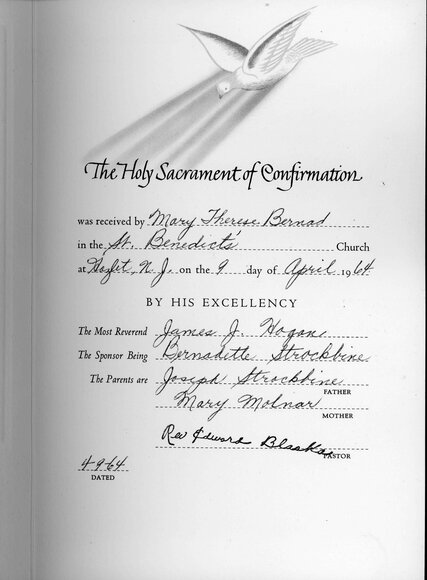 The Holy Sacrament of Confirmation
was received by Mary Therese Bernad
in the St. Benedict's Church
at Hazlet, N.J. on the 9 day of April 1964
BY HIS EXCELLENCY
The Most Reverend James J. Hogan
The Sponsor Being Bernadette Strockbine
The Parents are Joseph Strockbine
FATHER
Mary Molnar
MOTHER
Rev Edward Blaska
PASTOR
4-9-64
DATED